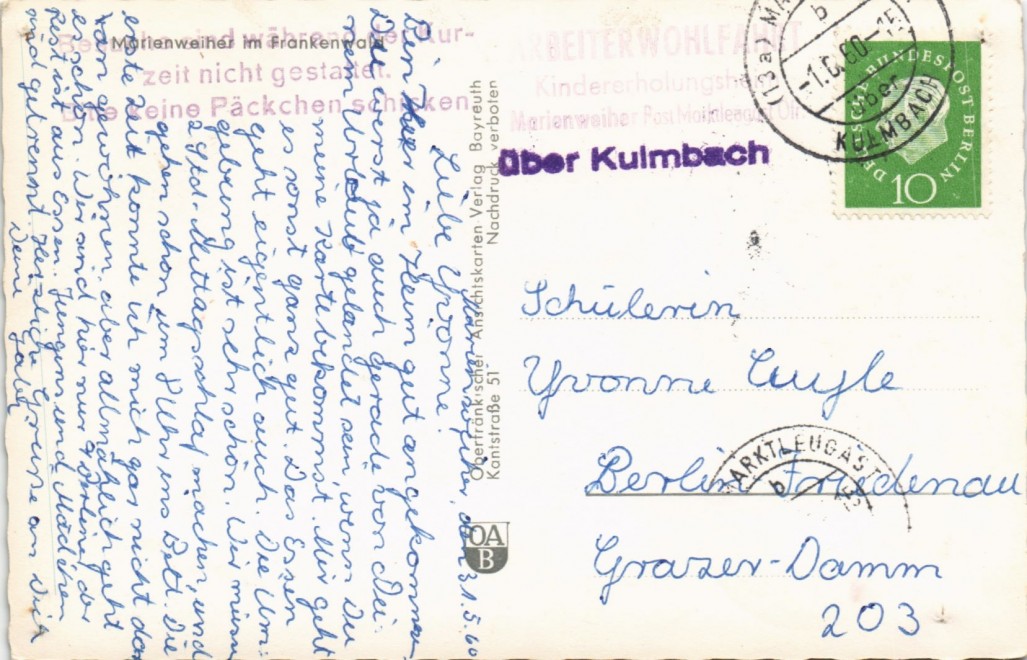 Marienweiher im Frankenwald
Besuche sind während der Kur-
zeit nicht gestattet.
Bitte keine Päckchen schicken.
ARBEITERWOHLFAHRT
Kindererholungsheim
Marienweiher Post Marktleugast Ofr.
über Kulmbach
über
KULMBACH
b
-1.6.60-15
DEUTSCHE BUNDESPOST BERLIN
10
Marienweiher, den 31.5.60
Liebe Yvonne!
Bin hier im Heim gut angekommen.
Du wirst ja auch gerade von Dei-
nem Urlaub gelandet sein, wenn Du
meine Karte bekommst. Mir geht
es sonst ganz gut. Das Essen
geht eigentlich auch. Die Um-
gebung ist sehr schön. Wir müssen
2 Std. Mittagsschlaf machen, und
gehen schon um 8 Uhr ins Bett. Die
erste Zeit konnte ich mich gar nicht daran
gewöhnen, aber allmählich geht
es schon. Wir sind hier nur Berliner, der
Rest ist aus Essen. Jungen und Mädchen
sind getrennt. Herzliche Grüsse an Dich
Deine
Oberfränkischer Ansichtskarten Verlag Bayreuth
Kantstraße 51 Nachdruck verboten
OA
B
Schülerin
Yvonne
Berlin Friedenau
Grazer-Damm
203
MARKTLEUGAST
b